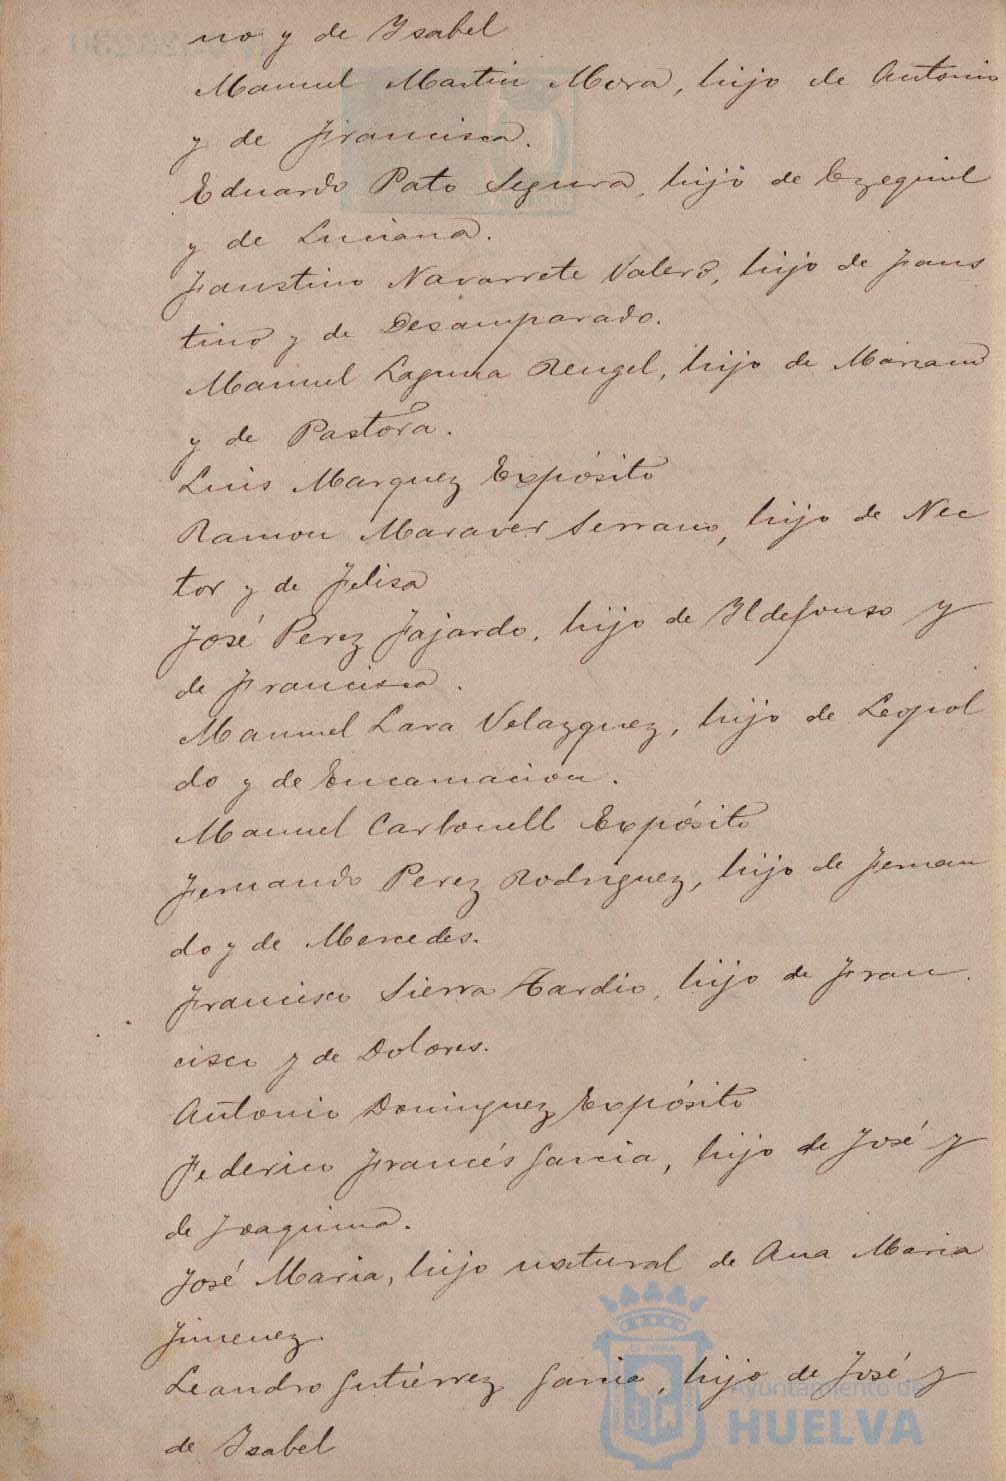 no y de Ysabel
Manuel Martin Mora, hijo de Antonio
y de Francisca.
Eduardo Pato Segura, hijo de Ezequiel
y de Luciana.
Faustino Navarrete Valero, hijo de Faus
tino y de Desamparado.
Manuel Laguna Rengel, hijo de Mariano
y de Pastora.
Luis Marquez Expósito
Ramon Maraver Serrano, hijo de Nec
tor y de Felisa
José Perez Fajardo, hijo de Yldefonso y
de Francisca.
Manuel Lara Velazquez, hijo de Leopol
do y de Encarnacion.
Manuel Carbonell Expósito
Fernando Perez Rodriguez, hijo de Fernan
do y de Mercedes.
Francisco Sierra Tardio, hijo de Fran
cisco y de Dolores.
Antonio Dominguez Expósito
Federico Francés Garcia, hijo de José y
de Joaquina.
José Maria, hijo natural de Ana Maria
Jimenez.
Leandro Gutiérrez Garcia, hijo de José y
de Ysabel
Ayuntamiento de
HUELVA